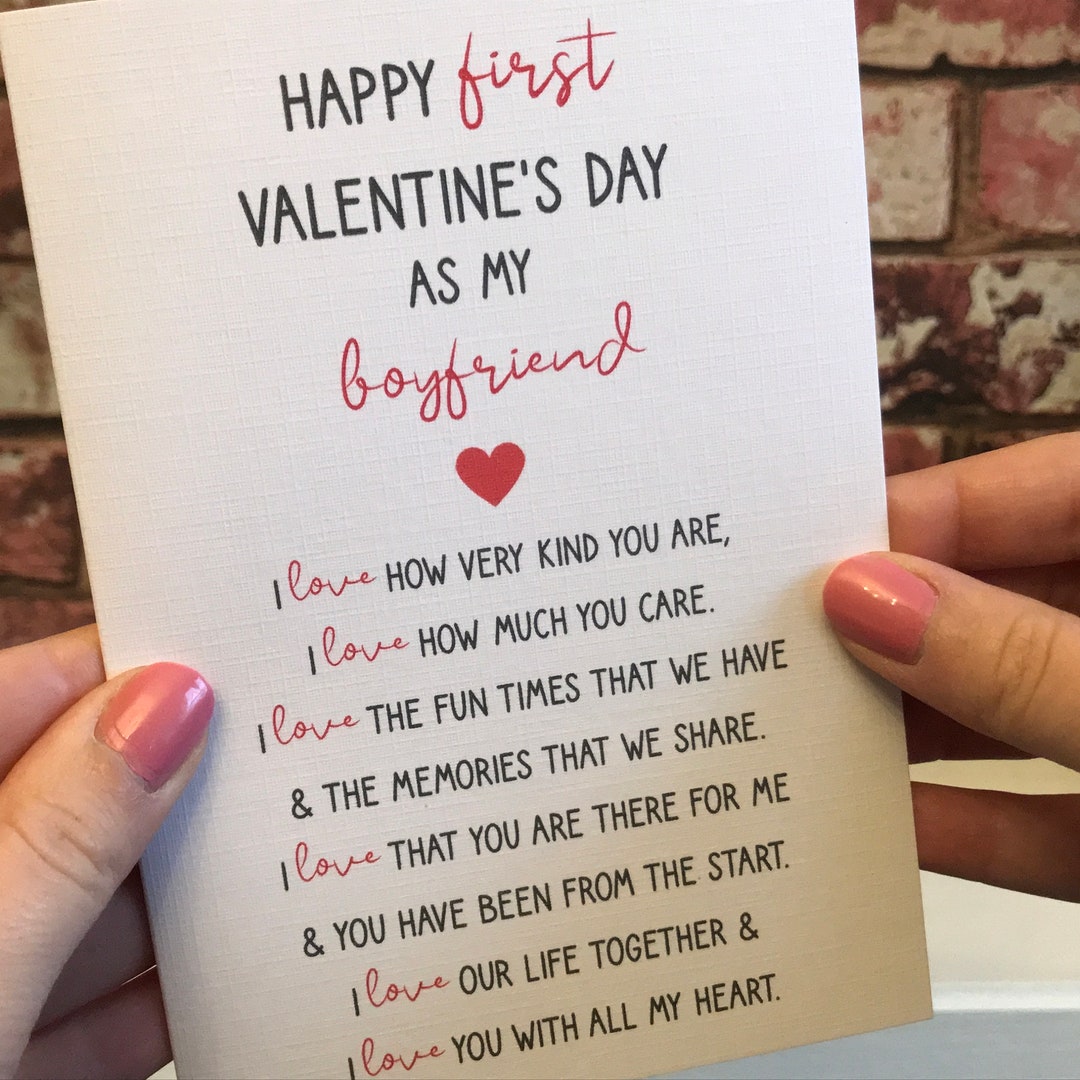 HAPPY first
VALENTINE'S DAY
AS MY
boyfriend
I love HOW VERY KIND YOU ARE,
I love HOW MUCH YOU CARE.
I love THE FUN TIMES THAT WE HAVE
& THE MEMORIES THAT WE SHARE.
I love THAT YOU ARE THERE FOR ME
& YOU HAVE BEEN FROM THE START.
I love OUR LIFE TOGETHER &
I love YOU WITH ALL MY HEART.